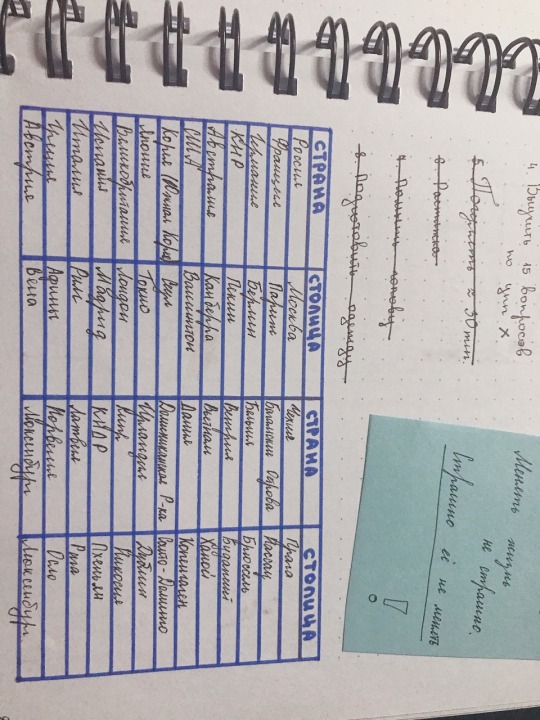 4. Выучить 15 вопросов
по X
5. ≈ 30 min
6. Растяжка
7. Помыть голову
8. Подготовить одежду
Менять жизнь
не страшно.
Страшно её не менять
!
СТРАНА СТОЛИЦА СТРАНА СТОЛИЦА
Россия Москва Чехия Прага
Франция Париж Багамские Острова Нассау
Германия Берлин Бельгия Брюссель
КНР Пекин Венгрия Будапешт
Австралия Канберра Вьетнам Ханой
США Вашингтон Дания Копенгаген
Корея (Южная Корея) Сеул Доминиканская Р-ка Санто-Доминго
Япония Токио Ирландия Дублин
Великобритания Лондон Кипр Никосия
Испания Мадрид КНДР Пхеньян
Италия Рим Латвия Рига
Греция Афины Норвегия Осло
Австрия Вена Люксембург Люксембург